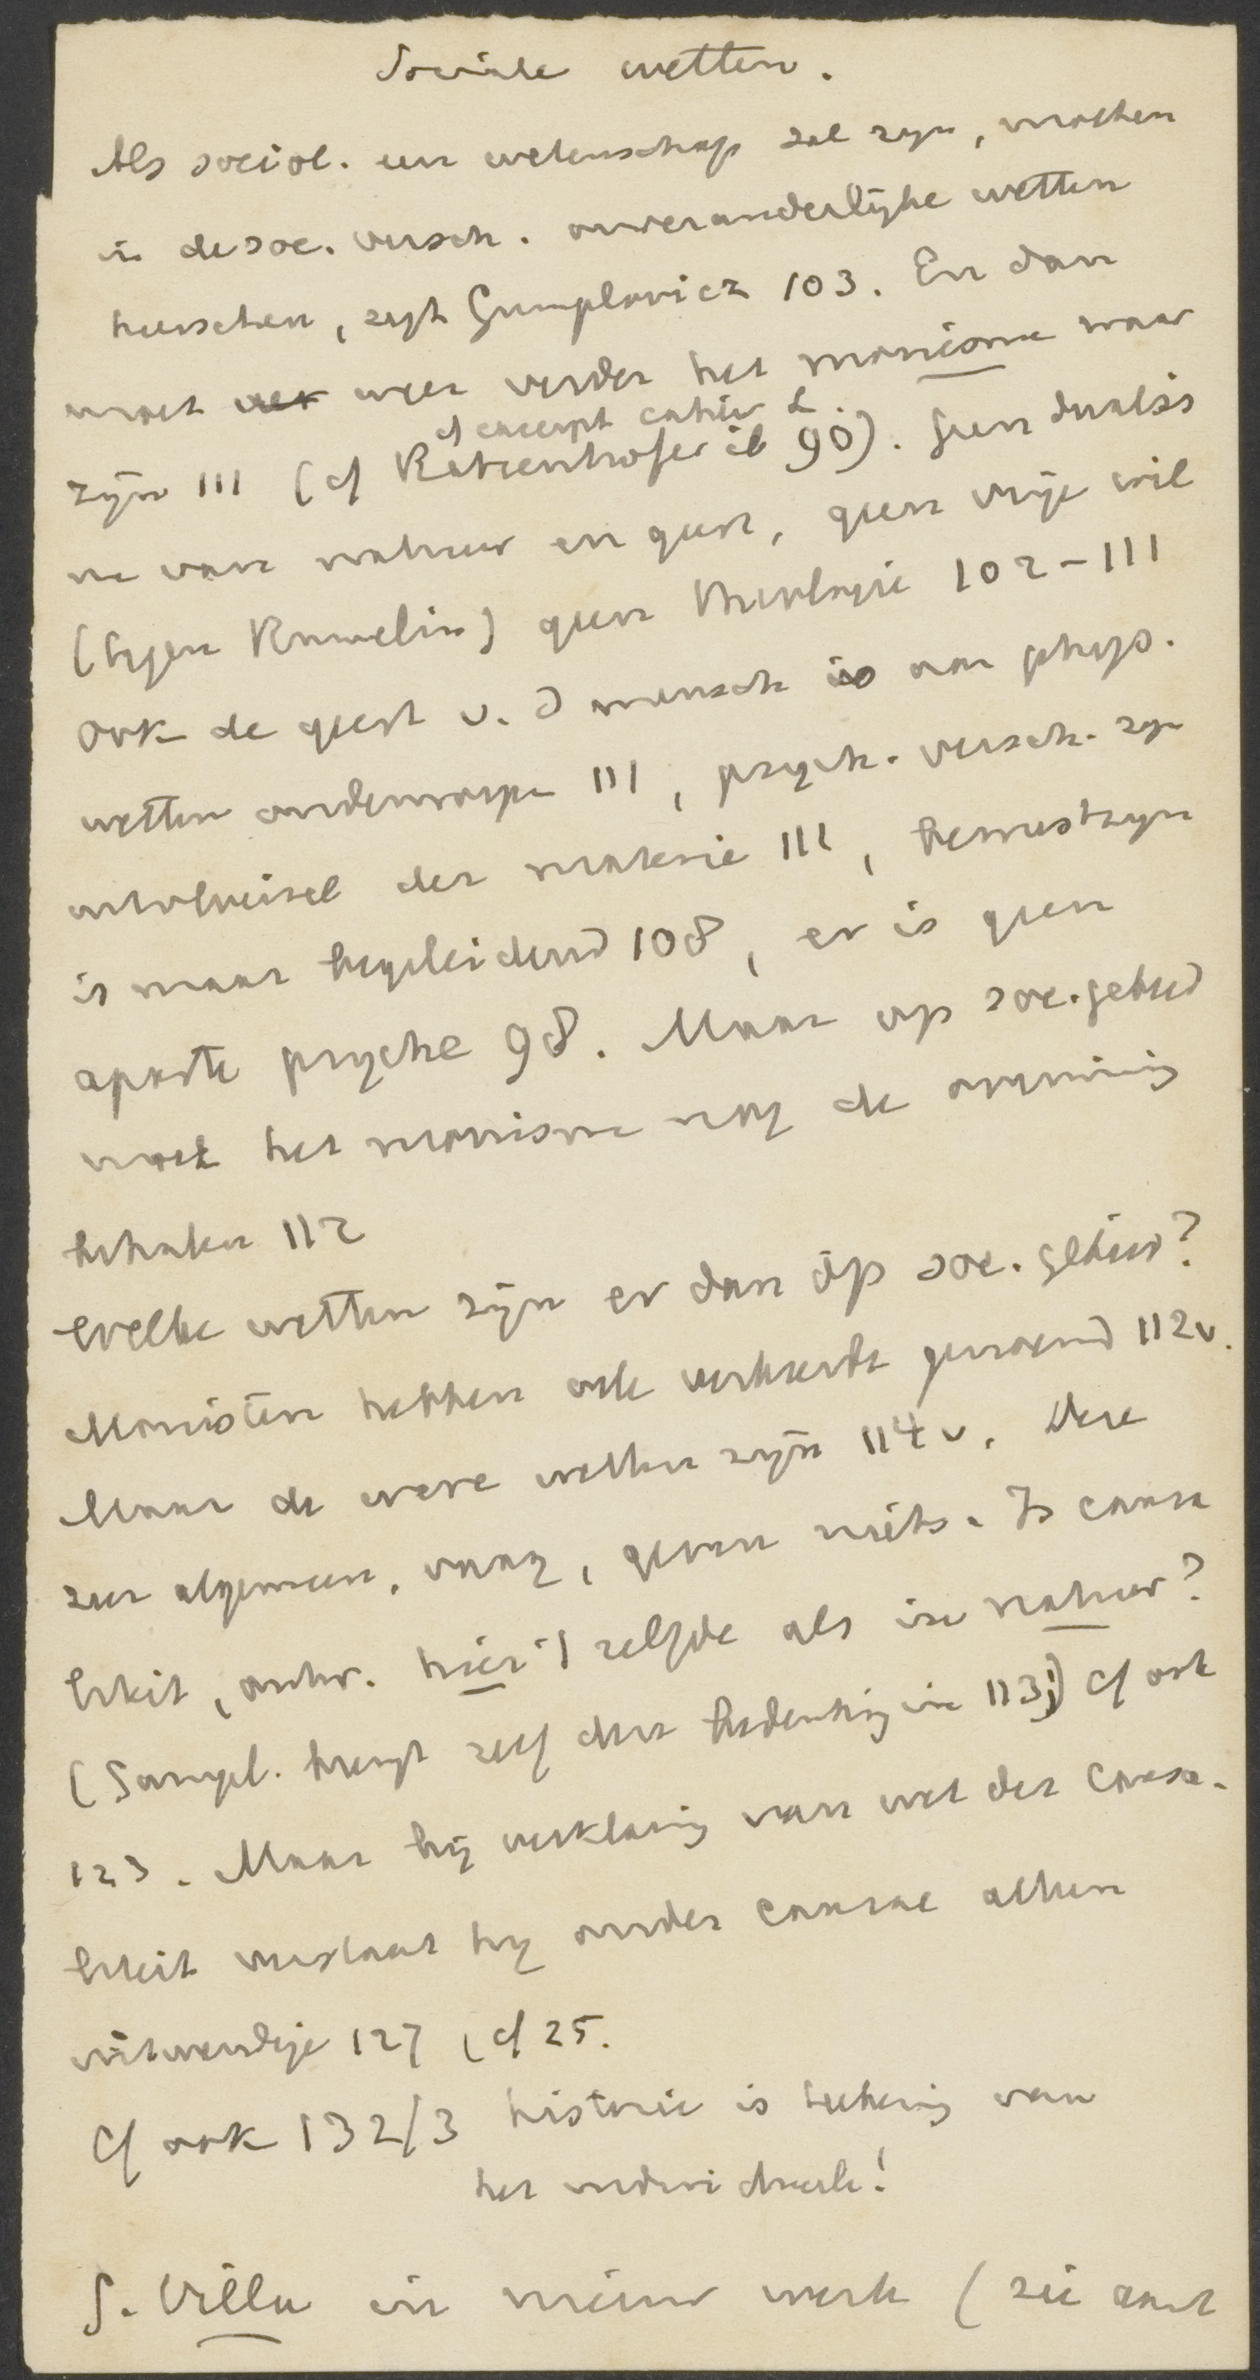 Sociale wetten.
Als sociol. een wetenschap zal zijn, moeten
in de soc. versch. onveranderlijke wetten
heerschen, zegt Gumplovicz 103. En dan
moet weer verder het monisme waar
cf excerpt cahier L.
zijn 111 (cf Ratzenhofer ib 90). Geen dualis
me van natuur en geest, geen vrije wil
(tegen Rumelin) geen theologie 102-111
Ook de geest v. d mensch is aan phys.
wetten onderworpen 111, psych. versch. zijn
uitvloeisel der materie 111, bewustzijn
is maar begeleidend 108, er is geen
aparte psyche 98. Maar op soc. gebied
moet het monisme nog de
112
Welke wetten zijn er dan op soc. gebied?
Monisten hebben vele verkeerde genoemd 112v.
Maar de ware wetten zijn 114v. Deze
zeer algemeen, vaag, geven niets. Is causa
liteit, antw. hier 't zelfde als in natuur?
(Gumpl. brengt zelf deze bedenking in 113;) cf ook
123. Maar bij verklaring van wet der causa-
liteit verstaat hij onder causae alleen
uitwendige 127, cf 25.
Cf ook 132/3 historie is teekening van
het individueele!
G. Villa in nieuw werk (zie